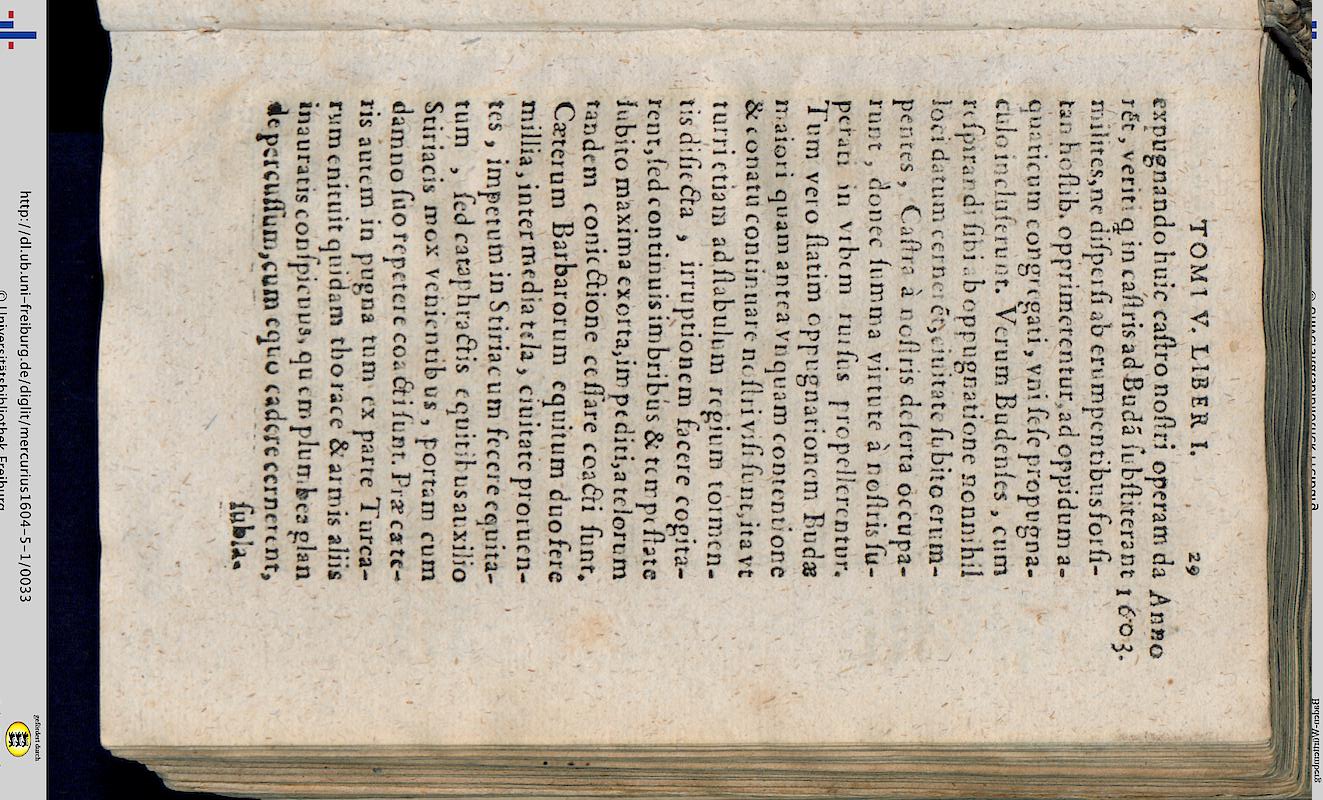 TOMI V. LIBER I. 29
expugnando huic caſtro noſtri operam da Anno
rēt, veriti q̄ in caſtris ad Budā ſubſtiterant 1603.
milites, ne diſperſi ab erumpentibus forſi-
tan hoſtib. opprimerentur, ad oppidum a-
quaticum congregati, vni ſeſe propugna-
culo incluſerunt. Verum Budenſes, cum
reſpirandi ſibi ab oppugnatione nonnihil
loci datum cernerēt, ciuitate ſubito erum-
pentes, Caſtra à noſtris deſerta occupa-
runt, donec ſumma virtute à noſtris ſu-
perati in vrbem rurſus propellerentur.
Tum vero ſtatim oppugnationem Budæ
maiori quam antea vnquam contentione
& conatu continuare noſtri viſi ſunt, ita vt
turri etiam ad ſtabulum regium tormen-
tis diſiecta, irruptionem facere cogita-
rent, ſed continuis imbribus & tempeſtate
ſubito maxima exorta, impediti, a telorum
tandem coniectione ceſſare coacti ſunt.
Cæterum Barbarorum equitum duo fere
millia, inter media tela, ciuitate proruen-
tes, impetum in Stiriacum fecere equita-
tum, ſed cataphractis equitibus auxilio
Stiriacis mox venientibus, portam cum
damno ſuo repetere coacti ſunt. Præ cæte-
ris autem in pugna tum ex parte Turca-
rum enituit quidam thorace & armis aliis
inauratis conſpicuus, quem plumbea glan
de percuſſum, cum equo cadere cernerent,
ſubla-
http://dl.ub.uni-freiburg.de/diglit/mercurius1604-5-1/0033
© Universitätsbibliothek Freiburg
gefördert durch